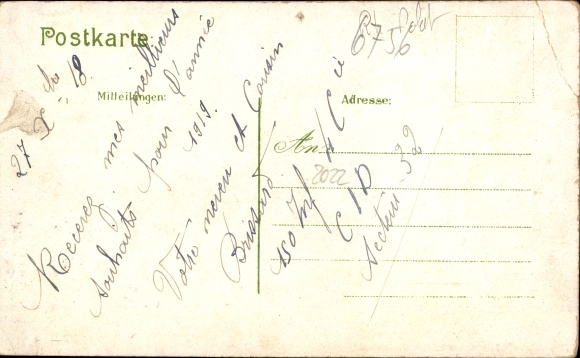 Postkarte.
Mitteilungen:
Adresse:
An
27 Xbre 18.
Recevez mes meilleurs
souhaits pour l'année
1919.
Votre neveu et Cousin
Brossard
150 M/ 4 Cie
C I D
Secteur 32
6756
2022